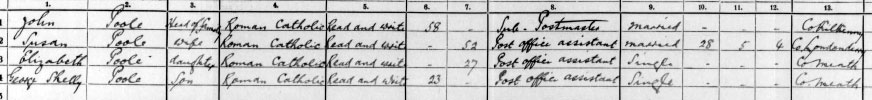 1. 2. 3. 4. 5. 6. 7. 8. 9. 10. 11. 12. 13.
John Poole Head of Family Roman Catholic Read and write 58 - Sub-Postmaster married - - - Co Kilkenny
2 Susan Poole Wife Roman Catholic Read and write - 52 Post office assistant married 28 5 4 Co Londonderry
3 Elizabeth Poole daughter Roman Catholic Read and write - 27 Post office assistant Single - - - Co Meath
4 George Skelly Poole Son Roman Catholic Read and write 23 - Post office assistant Single - - - Co Meath